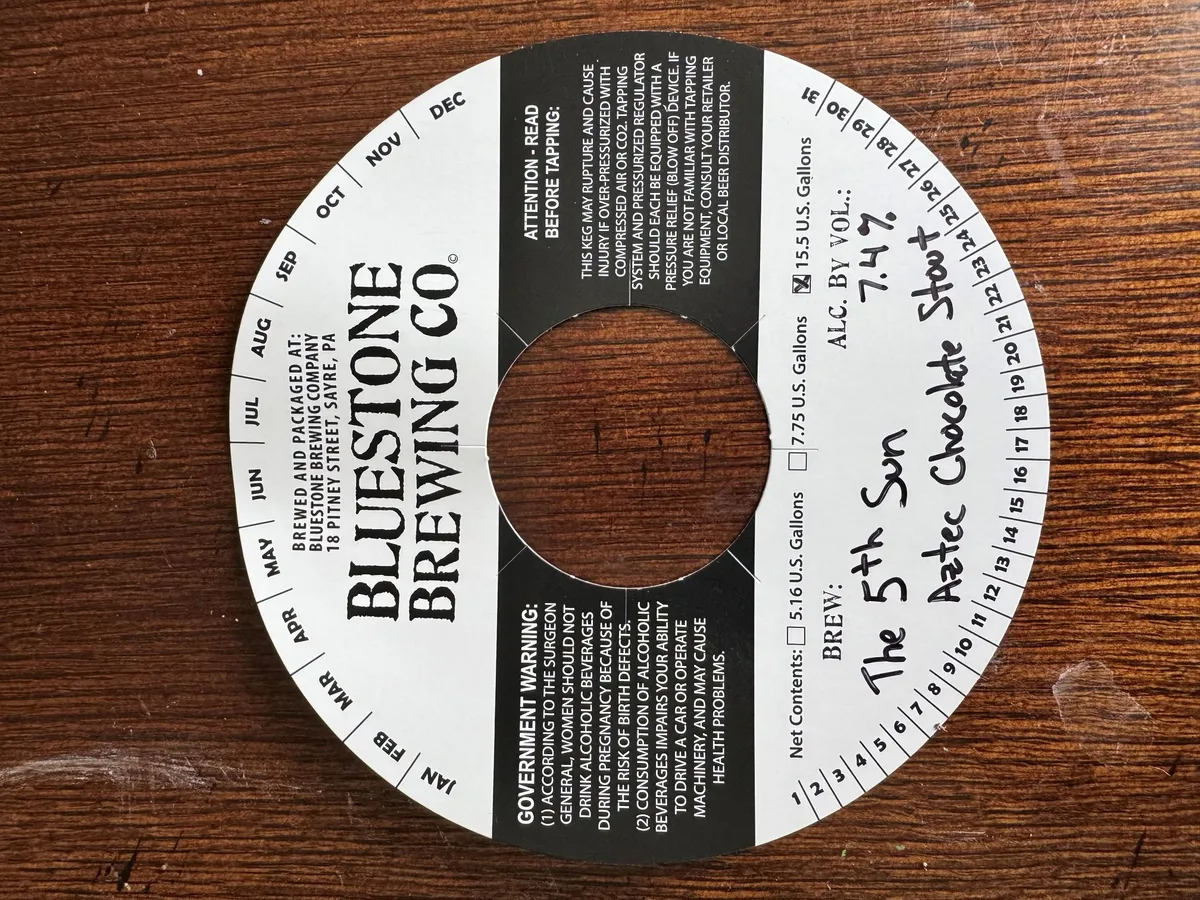 JAN
FEB
MAR
APR
MAY
JUN
JUL
AUG
SEP
OCT
NOV
DEC
BREWED AND PACKAGED AT:
BLUESTONE BREWING COMPANY
18 PITNEY STREET, SAYRE, PA
BLUESTONE
BREWING CO.©
GOVERNMENT WARNING:
(1) ACCORDING TO THE SURGEON
GENERAL, WOMEN SHOULD NOT
DRINK ALCOHOLIC BEVERAGES
DURING PREGNANCY BECAUSE OF
THE RISK OF BIRTH DEFECTS.
(2) CONSUMPTION OF ALCOHOLIC
BEVERAGES IMPAIRS YOUR ABILITY
TO DRIVE A CAR OR OPERATE
MACHINERY, AND MAY CAUSE
HEALTH PROBLEMS.
ATTENTION - READ
BEFORE TAPPING:
THIS KEG MAY RUPTURE AND CAUSE
INJURY IF OVER-PRESSURIZED WITH
COMPRESSED AIR OR CO2. TAPPING
SYSTEM AND PRESSURIZED REGULATOR
SHOULD EACH BE EQUIPPED WITH A
PRESSURE RELIEF (BLOW OFF) DEVICE. IF
YOU ARE NOT FAMILIAR WITH TAPPING
EQUIPMENT, CONSULT YOUR RETAILER
OR LOCAL BEER DISTRIBUTOR.
Net Contents: 5.16 U.S. Gallons 7.75 U.S. Gallons 15.5 U.S. Gallons
BREW: ALC. BY VOL.:
The 5th Sun 7.4%
Aztec Chocolate Stout
1
2
3
4
5
6
7
8
9
10
11
12
13
14
15
16
17
18
19
20
21
22
23
24
25
26
27
28
29
30
31